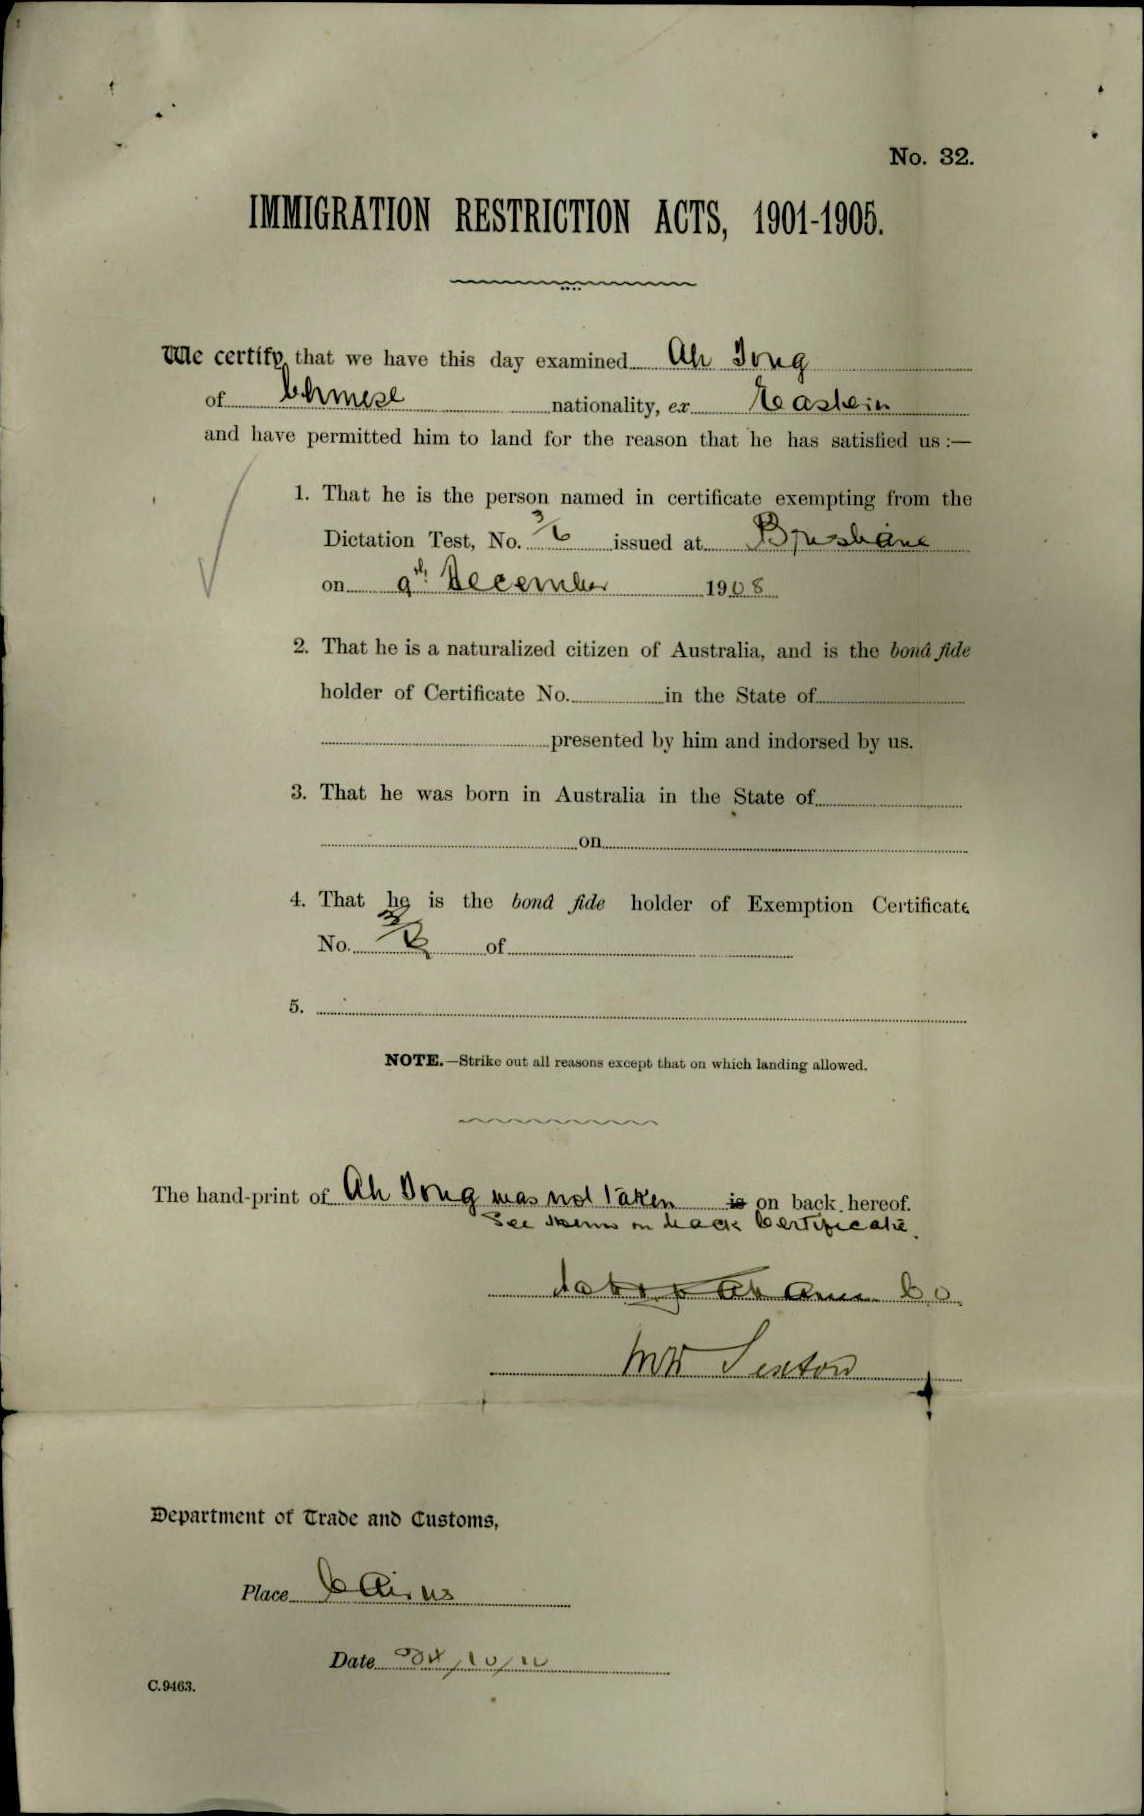 No. 32.
IMMIGRATION RESTRICTION ACTS, 1901-1905.
We certify that we have this day examined Ah Tong
of Chinese nationality, ex Eastern
and have permitted him to land for the reason that he has satisfied us :—
1. That he is the person named in certificate exempting from the
Dictation Test, No. 3/6 issued at Brisbane
on 9th December 1908
2. That he is a naturalized citizen of Australia, and is the bonâ fide
holder of Certificate No. in the State of
presented by him and indorsed by us.
3. That he was born in Australia in the State of
on
4. That he is the bonâ fide holder of Exemption Certificate
No. of
5.
NOTE.—Strike out all reasons except that on which landing allowed.
The hand-print of Ah Tong was not taken is on back hereof.
See on back Certificate.
C.O.
Sexton
Department of Trade and Customs,
Place Cairns
Date /10/10
C.9463.